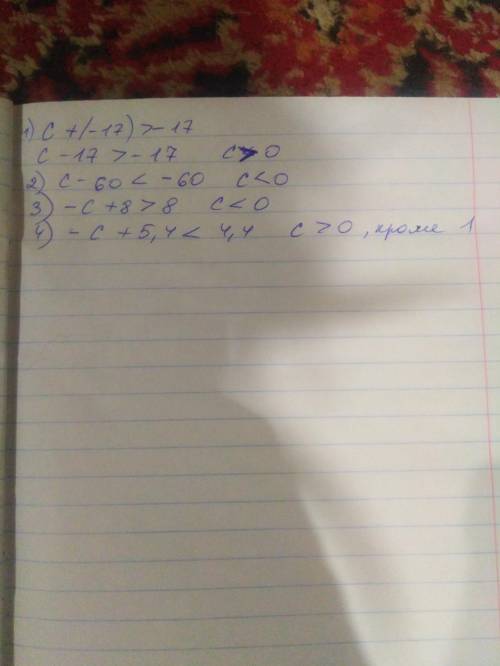 1) c + (-17) > -17
c - 17 > -17 c > 0
2) c - 60 < -60 c < 0
3) -c + 8 > 8 c < 0
4) -c + 5,4 < 4,4 c > 0, кроме 1